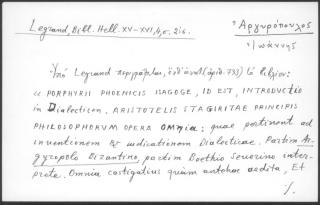 Legrand, Bibl. Hell. XV-XVI, 4, σ. 216.
Ἀργυρόπουλος
Ἰωάννης
Ὑπὸ Legrand περιγράφεται, (ἀριθ. 733) τὸ βιβλίον:
« PORPHYRII PHOENICIS ISAGOGE, ID EST, INTRODUCTIO
in Dialecticen. ARISTOTELIS STAGIRITAE PRINCIPIS
PHILOSOPHORUM OPERA OMNIA: quae pertinent ad
inventionem & iudicationem Dialecticae. Partim Ar-
gyropolo Bizantino, partim Boethio Severino inter-
prete. Omnia castigatius quàm antehac aedita, Et
·/.